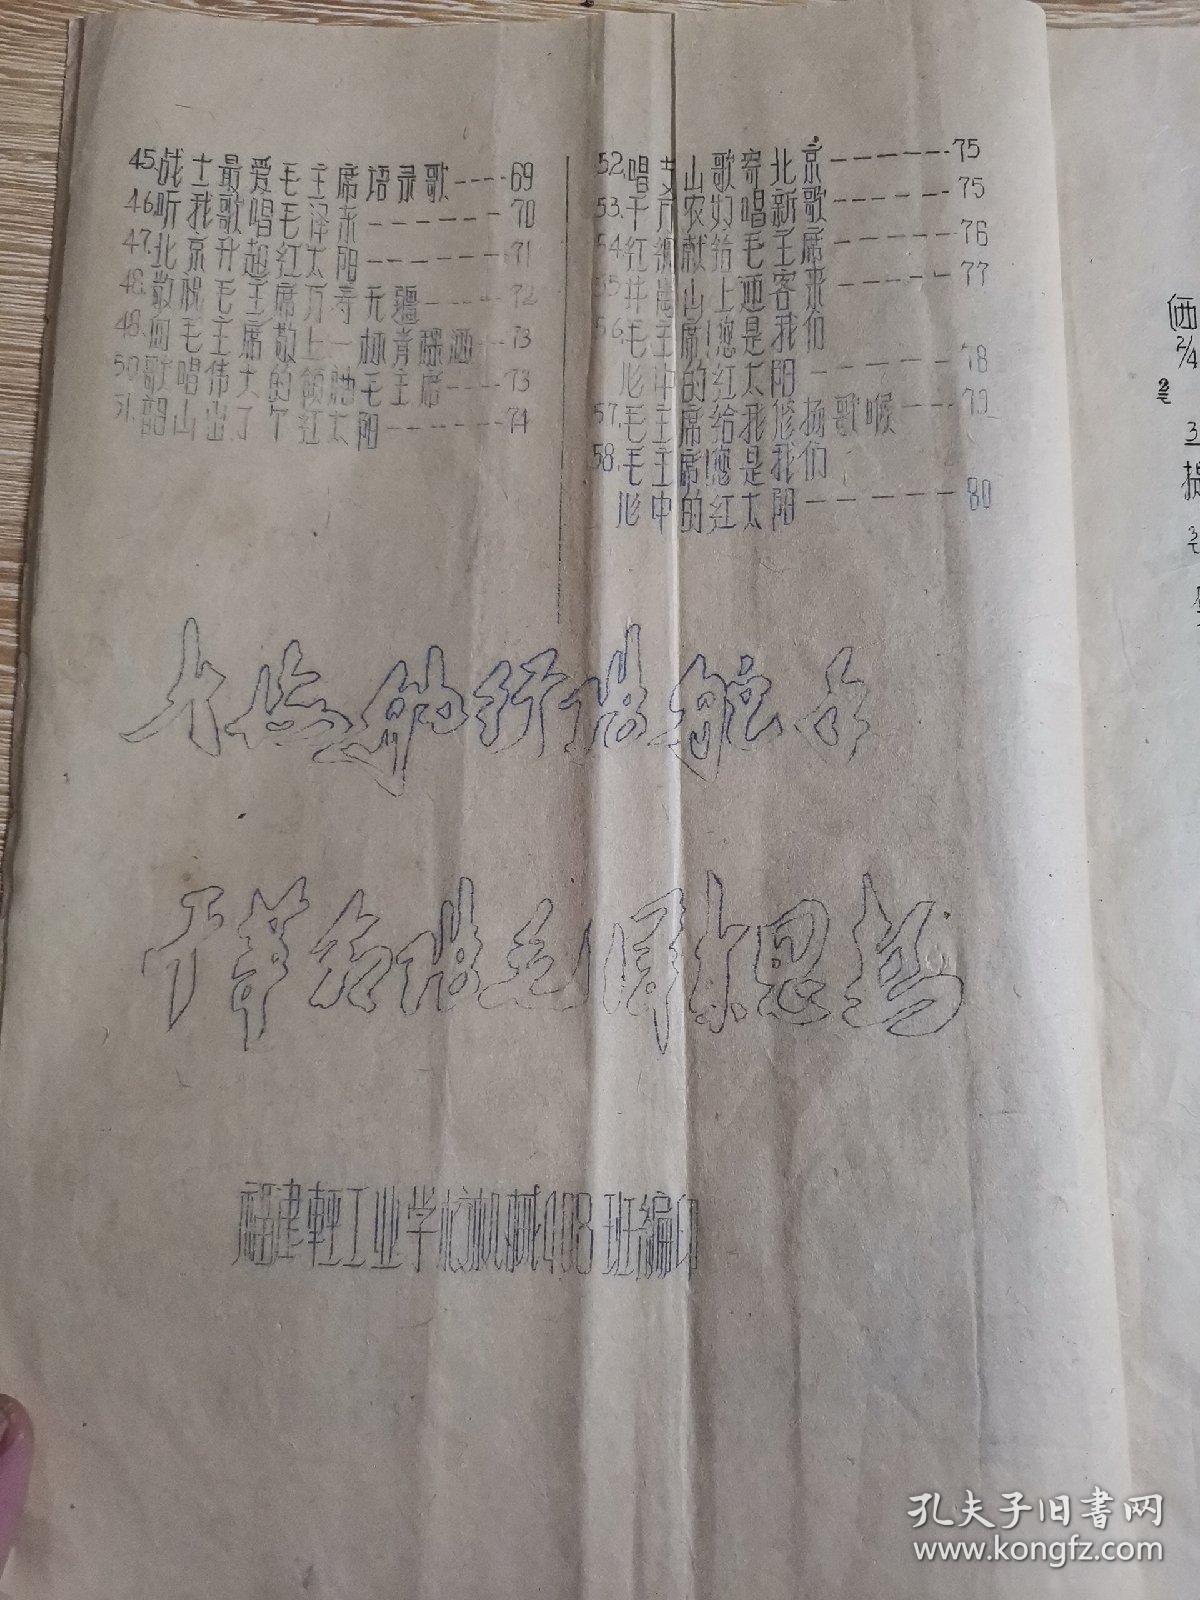 45.战士最爱毛主席语录歌----69
46.听我歌唱毛泽东------70
47.北京升起红太阳------71
48.敬祝毛主席万寿无疆----72
48.向毛主席敬上一杯青稞酒--73
50.歌唱伟大的领袖毛主席---73
51.韶山出了个红太阳------74
52.唱支山歌寄北京------75
53.千万农奴唱新歌------75
54.红绸献给毛主席------76
55.井崗山上迎客来------77
56.毛主席!您是我们
心中的红太阳------78
57.毛主席给我修扬歌喉---79
58.毛主席!您是我们
心中的红太阳------80
大海航行靠舵手
干革命靠毛泽东思想
福建輕工业学校机械408班编印
2/4
孔夫子旧书网
www.kongfz.com